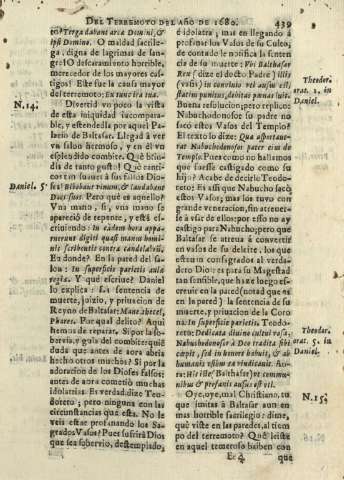 DEL TERREMOTO DEL AÑO DE 1680. 439
to? Terga dabant arca Domini, &
ipsi Domino. O maldad sacrile-
ga, digna de lagrimas de san-
gre! O descaramiento horrible,
merecedor de los mayores cas-
tigos! Este fue la causa mayor
del terremoto; Ex tunc ira ina.
N. 14. Divertid vn poco la vista
de esta iniquidad incompara-
ble, y estendedla por aquel Pa-
lacio de Baltasar. Llegad à ver
vn salon hermoso, y en èl vn
esplendido combite. Què brin-
dis de tanto gusto! Què canti-
cos tan suaues à sus falsos Dio-
Daniel. 5 ses! Bibebant vinum, & laudabant
Deos suos. Pero què es aquello?
Vna mano, si, vna mano se
apareciò de repente, y està es-
criuiendo: In eadem hora appa-
ruerunt digiti quasi manus homi-
nis scribentis contra candelabrũ.
En donde? En la pared del sa-
lon: In superficie parietis aulæ
regiæ. Y què escriue? Daniel
lo explica: La sentencia de
muerte, juizio, y priuacion de
Reyno de Baltasar: Mane, thecel,
Phares. Por què delito? Aqui
hemos de reparar. Si por la so-
beruia, y gula del combite; quiẽ
duda que antes de aora abria
hecho otros muchos? Si por la
adoracion de los Dioses falsos;
antes de aora cometiò muchas
idolatrias. Es verdad: dize Teo-
doreto; pero ninguna con las
circunstancias que esta. No le
veis estar profanando los Sa-
grados Vasos? Pues sufrirà Dios
que sea soberuio, destemplado,
è idolatra; mas en llegando à
profanar los Vasos de su Culto,
de contado le notifica la senten-
cia de su muerte: Vbi Balthasar
Rex (dize el docto Padre) illis
(vasis) in conuiuio vti ausus est
statim punitus, debitas pœnas luit.
Theodor. orat. 1. in Daniel.
Buena resolucion; pero replico:
Nabuchodonosor su padre no
sacò estos Vasos del Templo?
El texto lo dize: Qua asporta-
uerat Nabuchodonosor pater eius de
Templo. Pues como no hallamos
que fuesse castigado como su
hijo? Acabe de decirlo Teodo-
reto: Es assi que Nabucho sacò
estos Vasos; mas los tuvo con
grande veneracion, sin atreuer-
se à vsar de ellos: por esso no ay
castigo para Nabucho; pero que
Baltasar se atreua à conuertir
en vasos de su deleite, los que
estauan consagrados al verda-
dero Dios: es para su Magestad
tan sensible, que haze luego es-
creuir en la pared (notad que es
en la pared) la sentencia de su
muerte, y priuacion de la Coro-
na: In superficie parietis. Teodo-
reto: Dedicata diuino cultui vasa,
Nabuchodonosor à Deo tradita sibi
cœpit, sed in honore habuit, & ab
humanis vsibus ea vindicauit. Ac-
Theodor. orat. 5. in Daniel.
vt: Hic iste (Balthasar) vt commu-
nibus & profanis ausus est vti.
N. 15. Oye, oye, mal Christiano, tu
que imitas à Baltasar aun en
mas horrible sacrilegio: dime,
què viste en las paredes, al tiem-
po del terremoto? Què leiste
en aquel temeroso baiben con
Ee 2 que